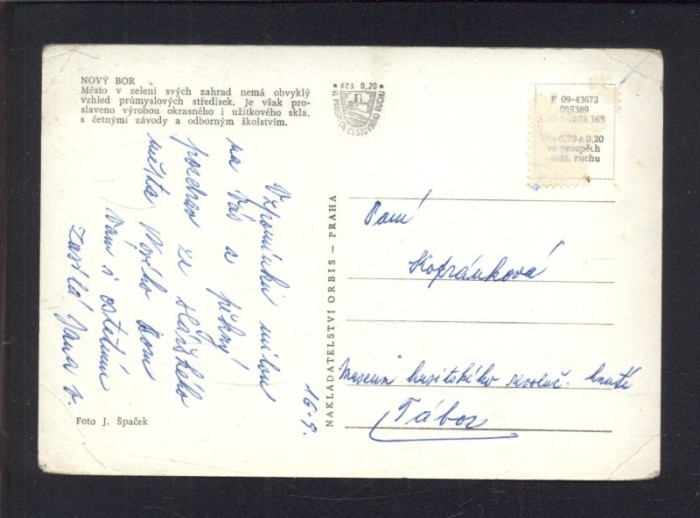 NOVÝ BOR
Město v zeleni svých zahrad nemá obvyklý
vzhled průmyslových středisek. Je však pro-
slaveno výrobou okrasného i užitkového skla,
s četnými závody a odborným školstvím.
KčS 0,20
VE PROSPĚCH CESTOVNÍHO RUCHU
F 09-43672
095389
Kčs 0,70 a 0,20
ve prospěch
cest. ruchu
16.9.
Vzpomínku milou
na Vás a pěkný
pozdrav ze sklářského
města Nového Boru
Vám i ostatním
zasílá Jana
NAKLADATELSTVÍ ORBIS — PRAHA
Paní
Kopránková
Museum husitského revoluč. hnutí
Tábor
Foto J. Špaček